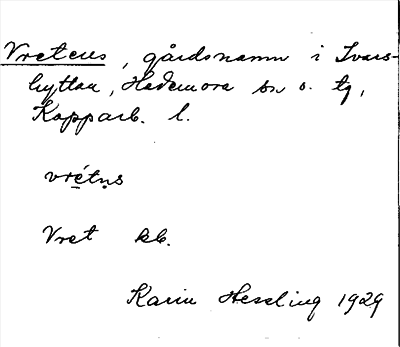 Vretens, gårdsnamn i Ivars-
hyttan, Hedemora sn o. tg,
Kopparb. l.
vrétn̥s
Vret kb.
Karin Hessling 1929